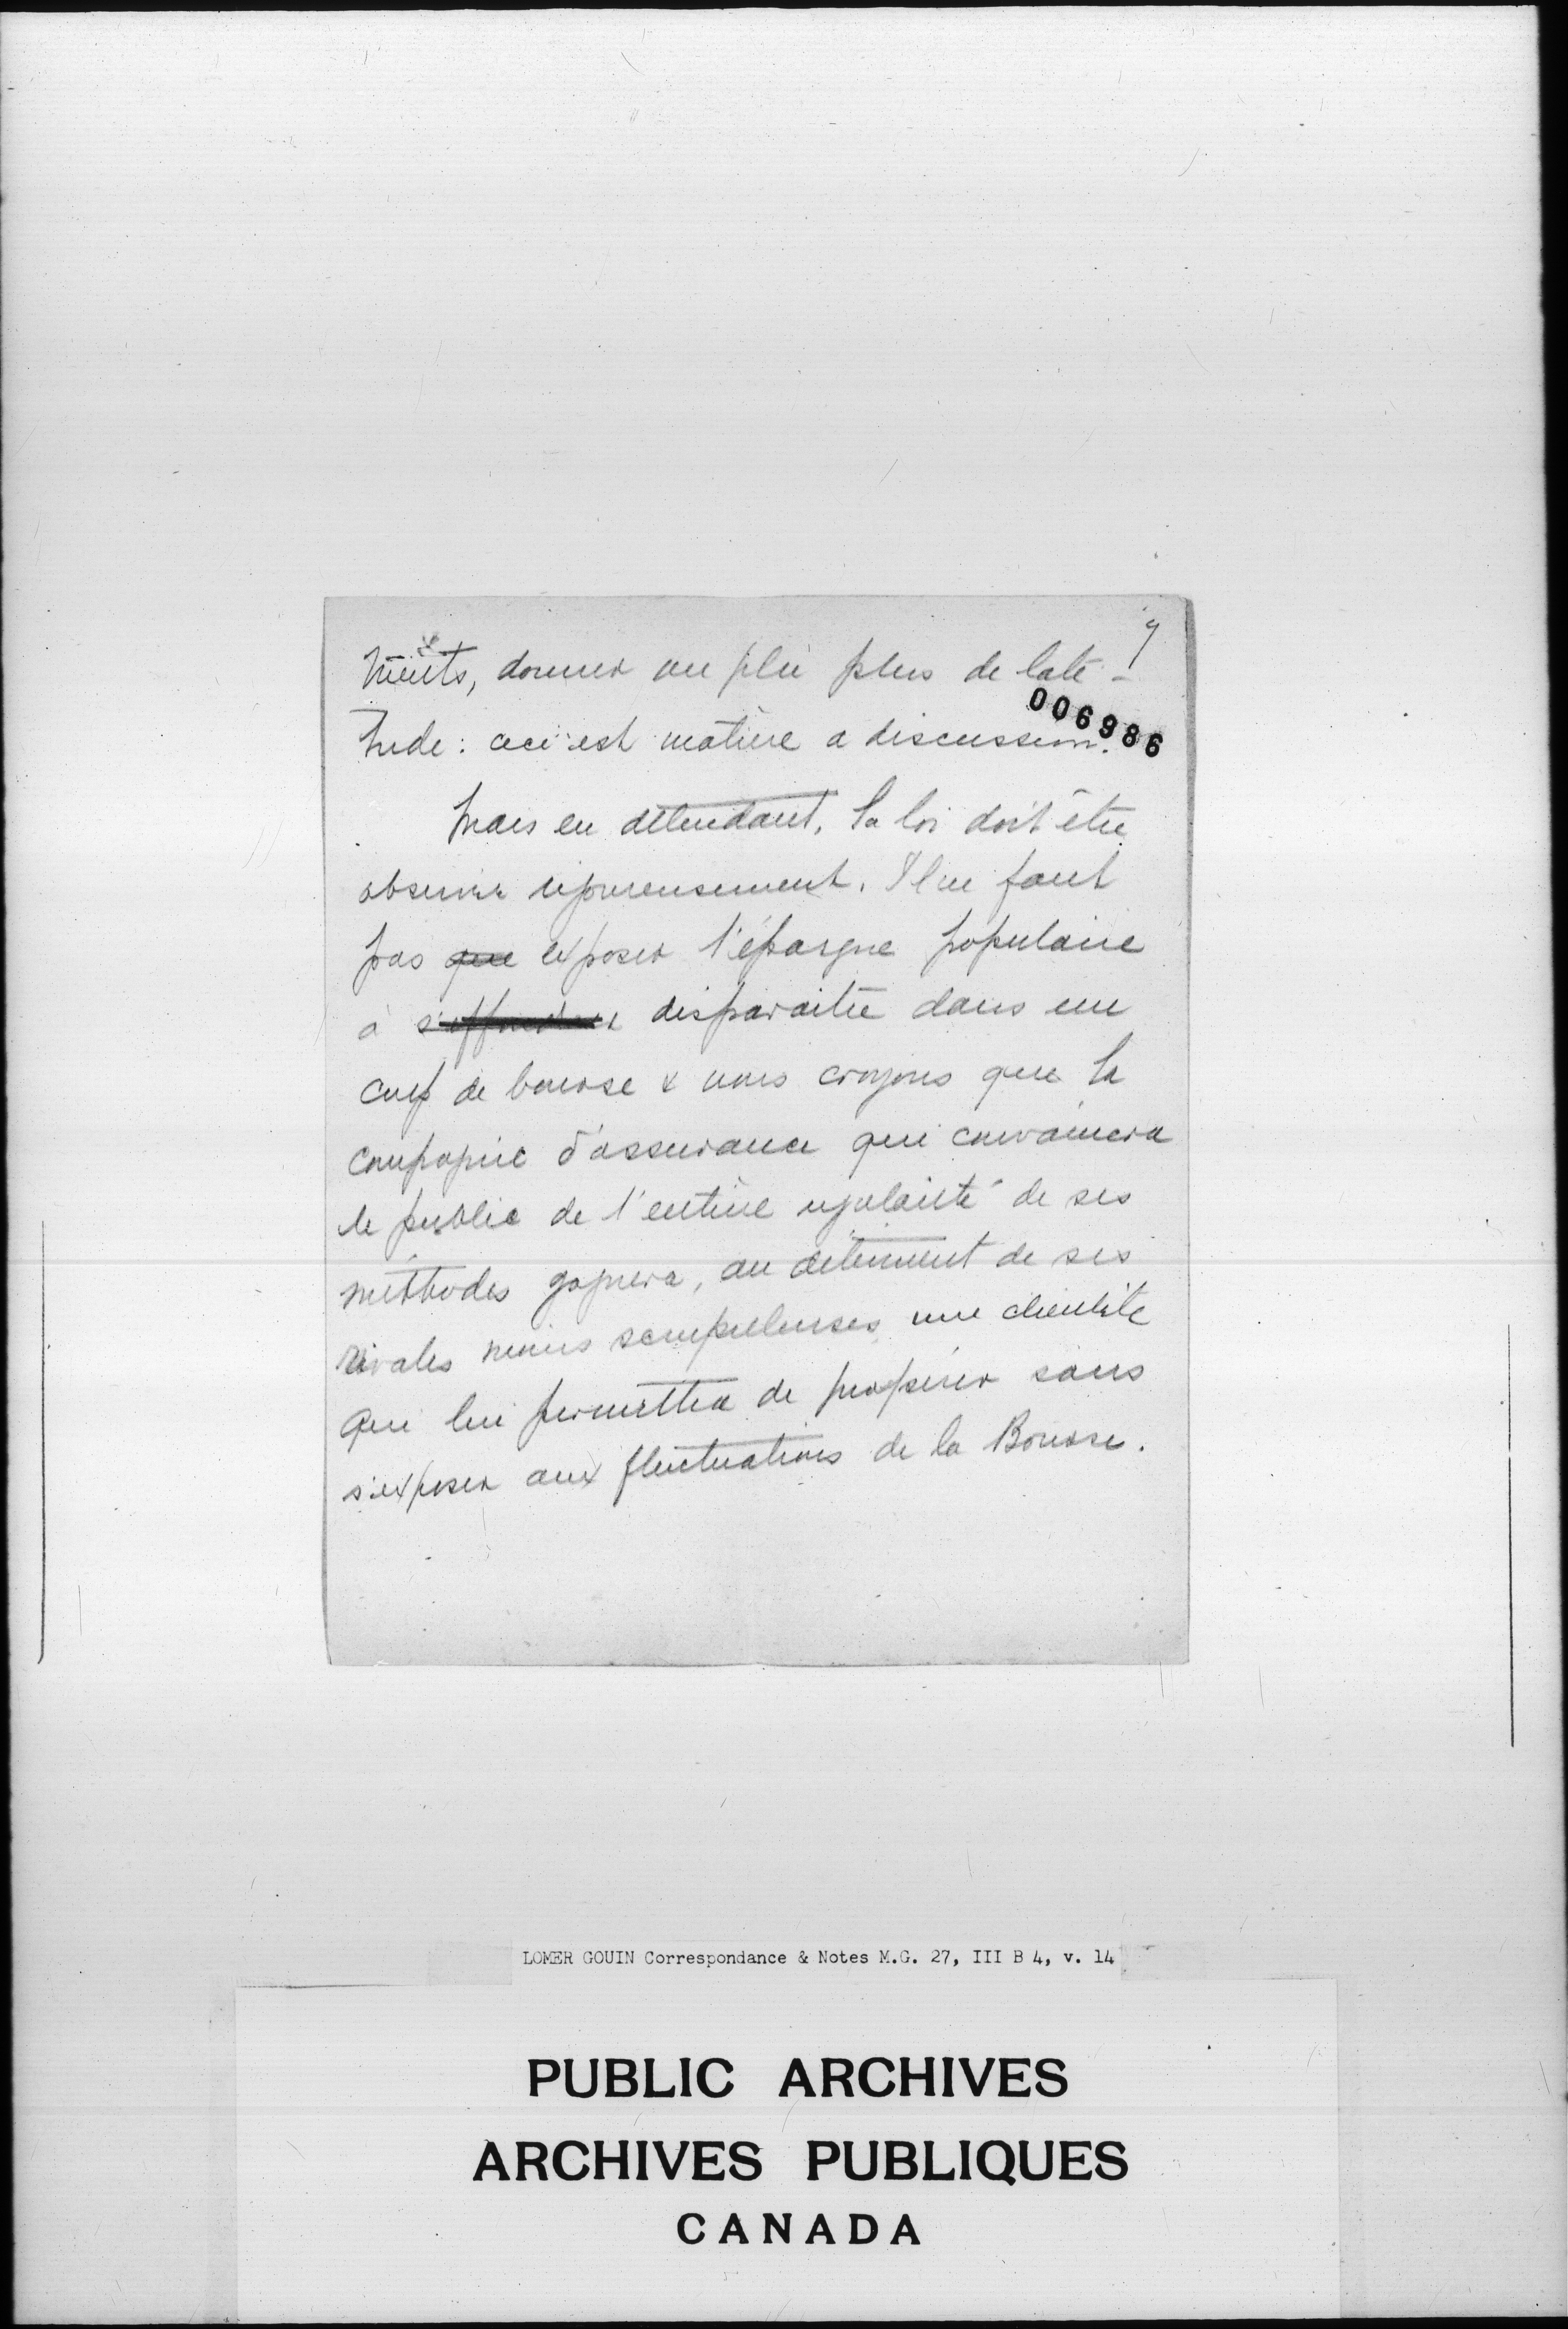 9
ments, donner un plu plus de lati-
006986
tude : ceci est matière a discussion.
Mais en attendant, la loi doit être
observée rigoureusement. Il ne faut
pas que exposer l'épargne populaire
à s'effondrer disparaitre dans un
coup de bourse & nous croyons que la
compagnie d'assurance qui convaincra
le public de l'entière régularité de ses
méthodes gagnera, au détriment de ses
rivales moins scrupuleuses une clientèle
qui lui permettra de prospérer sans
s'exposer aux fluctuations de la Bourse.
LOMER GOUIN Correspondance & Notes M.G. 27, III B 4, v. 14
PUBLIC ARCHIVES
ARCHIVES PUBLIQUES
CANADA